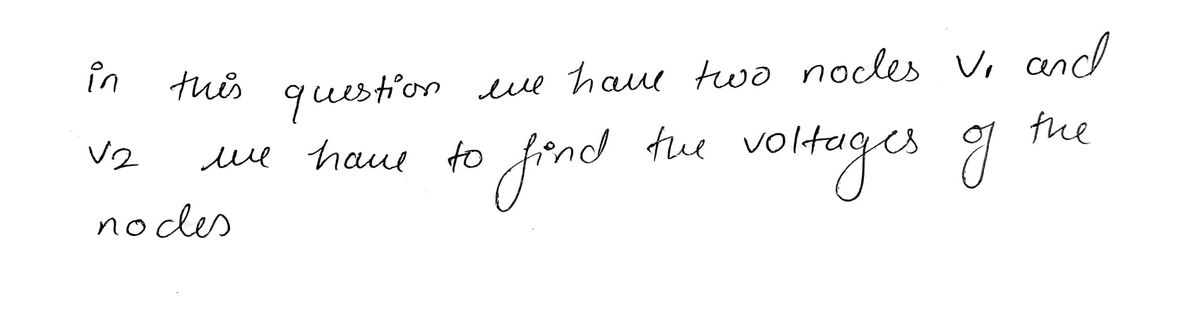 in this question we have two nodes V1 and
V2 we have to find the voltages of the
nodes